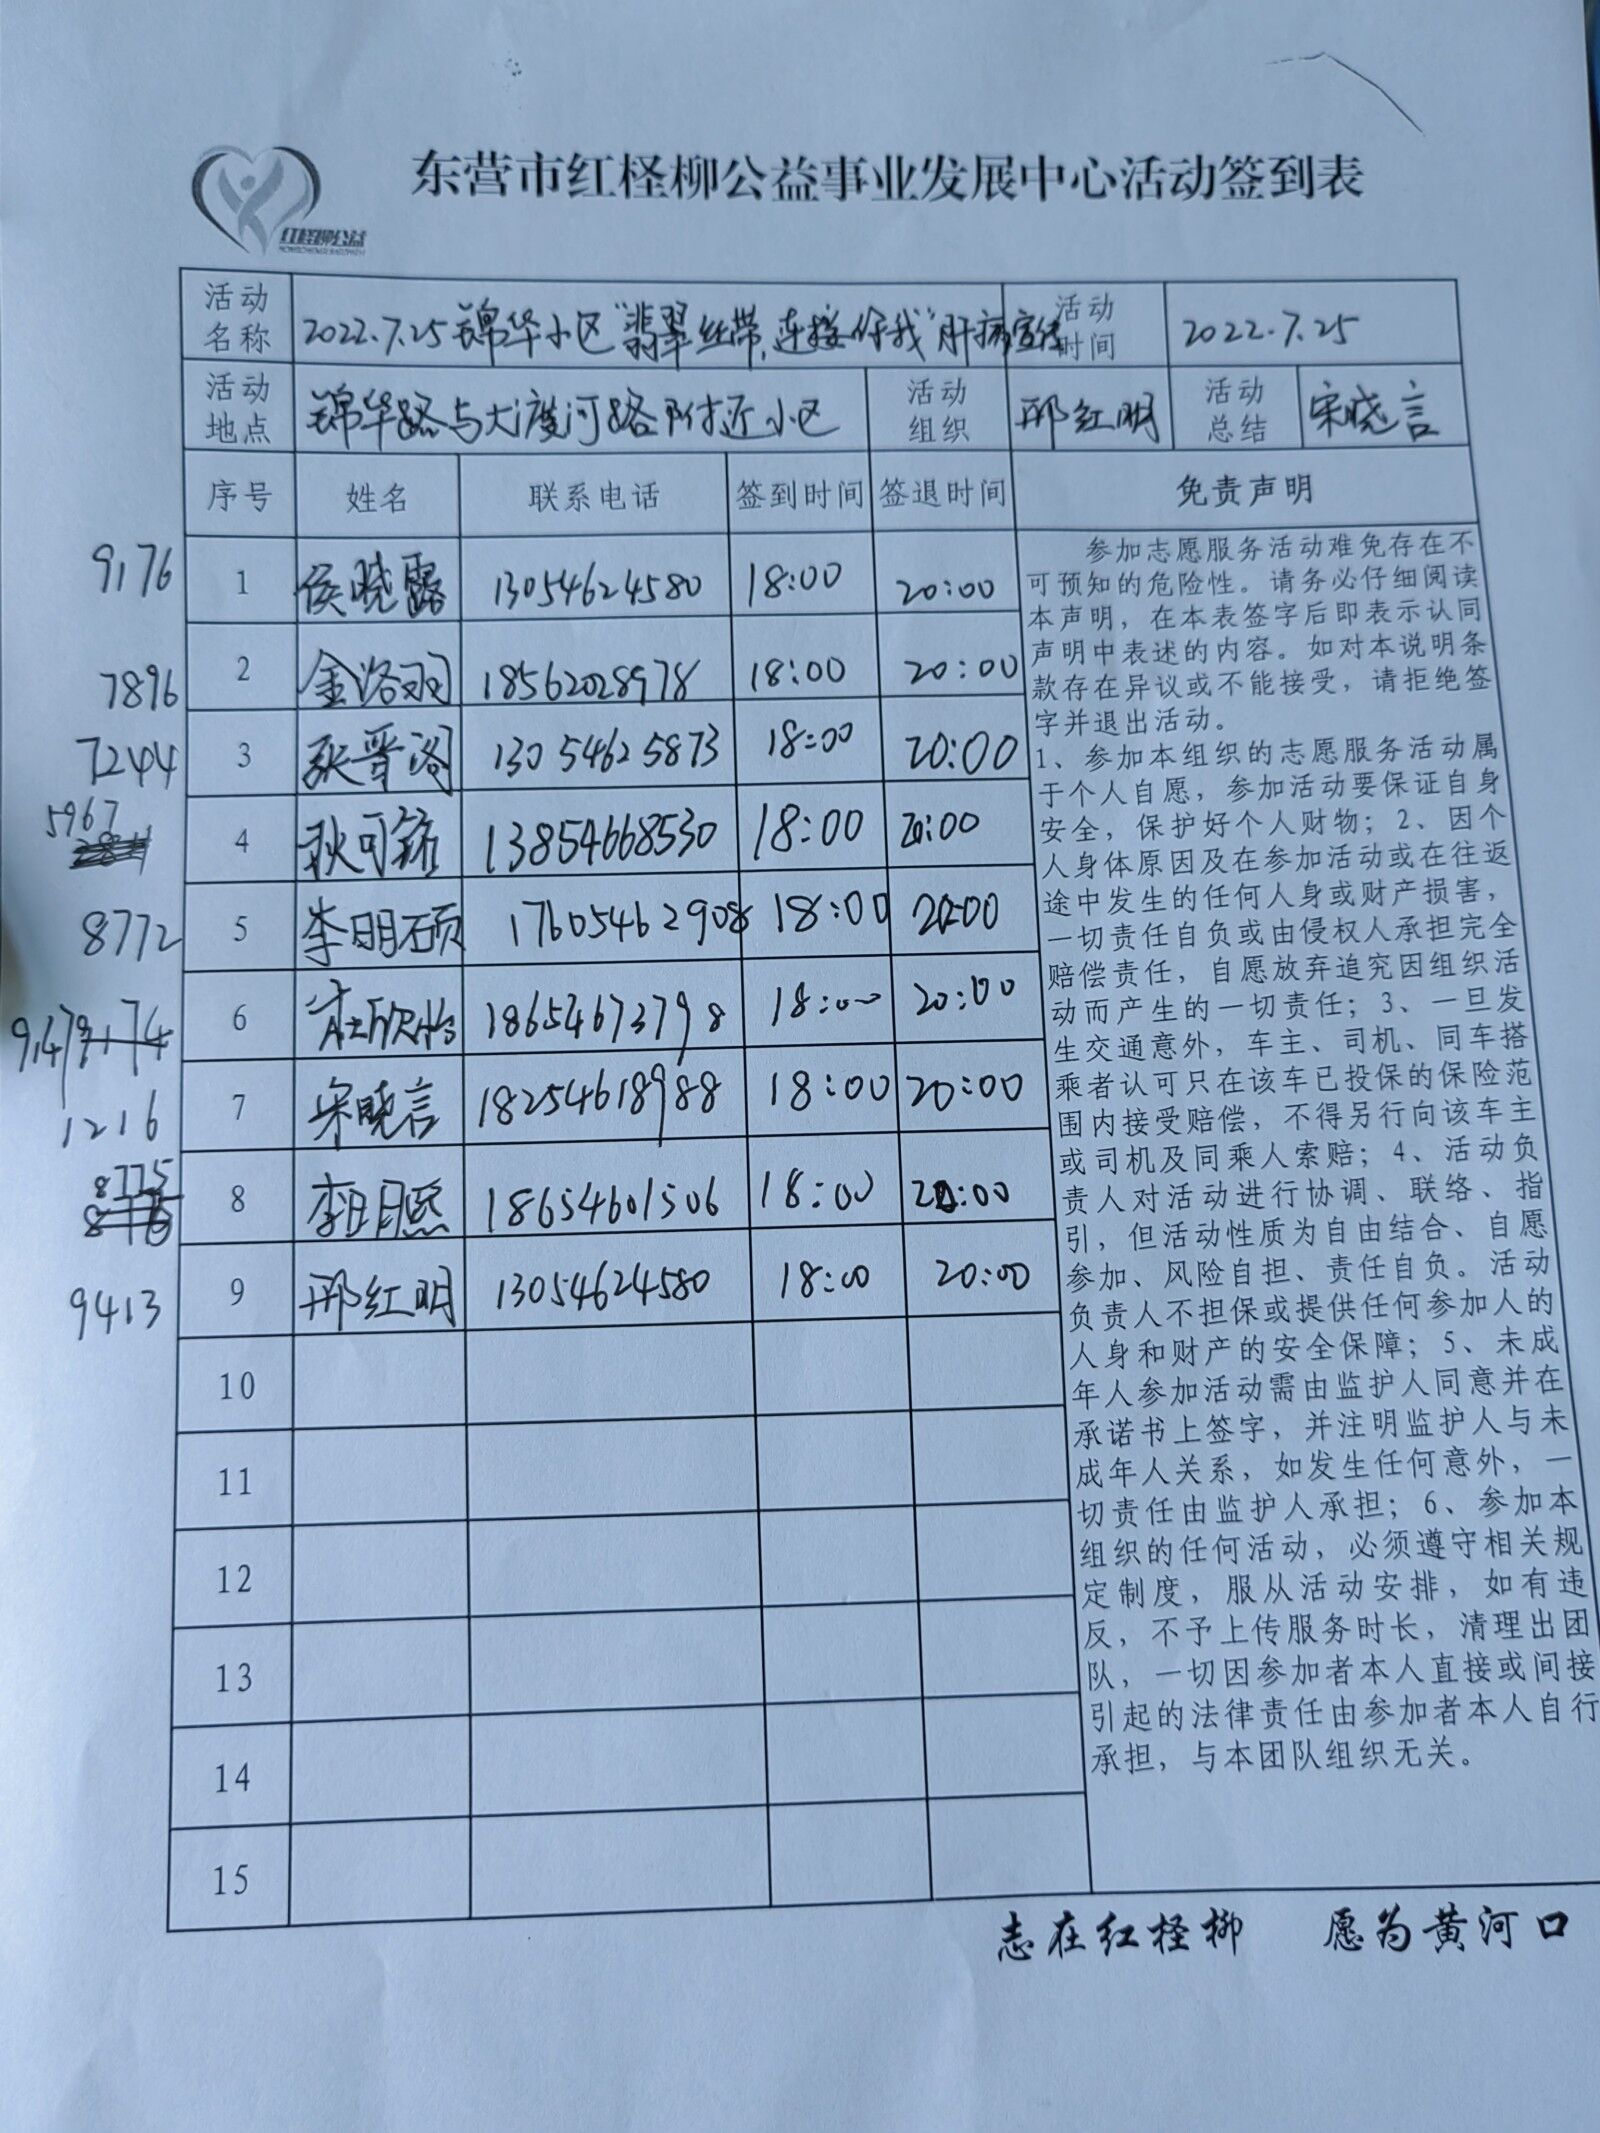 东营市红柽柳公益事业发展中心活动签到表
红柽柳公益
活动名称 2022.7.25锦华小区"翡翠丝带,连接你我"肝病宣传 活动时间 2022.7.25
活动地点 锦华路与大渡河路附近小区 活动组织 邢红明 活动总结 宋晓言
序号 姓名 联系电话 签到时间 签退时间 免责声明
9176 1 侯晓露 13054624580 18:00 20:00
7896 2 金洛羽 18562028978 18:00 20:00
7244 3 13054625873 18:00 20:00
5967 4 13854668530 18:00 20:00
8772 5 李明硕 17605462908 18:00 20:00
9479 6 18654673798 18:00 20:00
1216 7 宋晓言 18254618988 18:00 20:00
8775 8 李明熙 18654601506 18:00 20:00
9413 9 邢红明 13054624580 18:00 20:00
10
11
12
13
14
15
参加志愿服务活动难免存在不
可预知的危险性。请务必仔细阅读
本声明，在本表签字后即表示认同
声明中表述的内容。如对本说明条
款存在异议或不能接受，请拒绝签
字并退出活动。
1、参加本组织的志愿服务活动属
于个人自愿，参加活动要保证自身
安全，保护好个人财物；2、因个
人身体原因及在参加活动或在往返
途中发生的任何人身或财产损害，
一切责任自负或由侵权人承担完全
赔偿责任，自愿放弃追究因组织活
动而产生的一切责任；3、一旦发
生交通意外，车主、司机、同车搭
乘者认可只在该车已投保的保险范
围内接受赔偿，不得另行向该车主
或司机及同乘人索赔；4、活动负
责人对活动进行协调、联络、指
引，但活动性质为自由结合、自愿
参加、风险自担、责任自负。活动
负责人不担保或提供任何参加人的
人身和财产的安全保障；5、未成
年人参加活动需由监护人同意并在
承诺书上签字，并注明监护人与未
成年人关系，如发生任何意外，一
切责任由监护人承担；6、参加本
组织的任何活动，必须遵守相关规
定制度，服从活动安排，如有违
反，不予上传服务时长，清理出团
队，一切因参加者本人直接或间接
引起的法律责任由参加者本人自行
承担，与本团队组织无关。
志在红柽柳 愿为黄河口